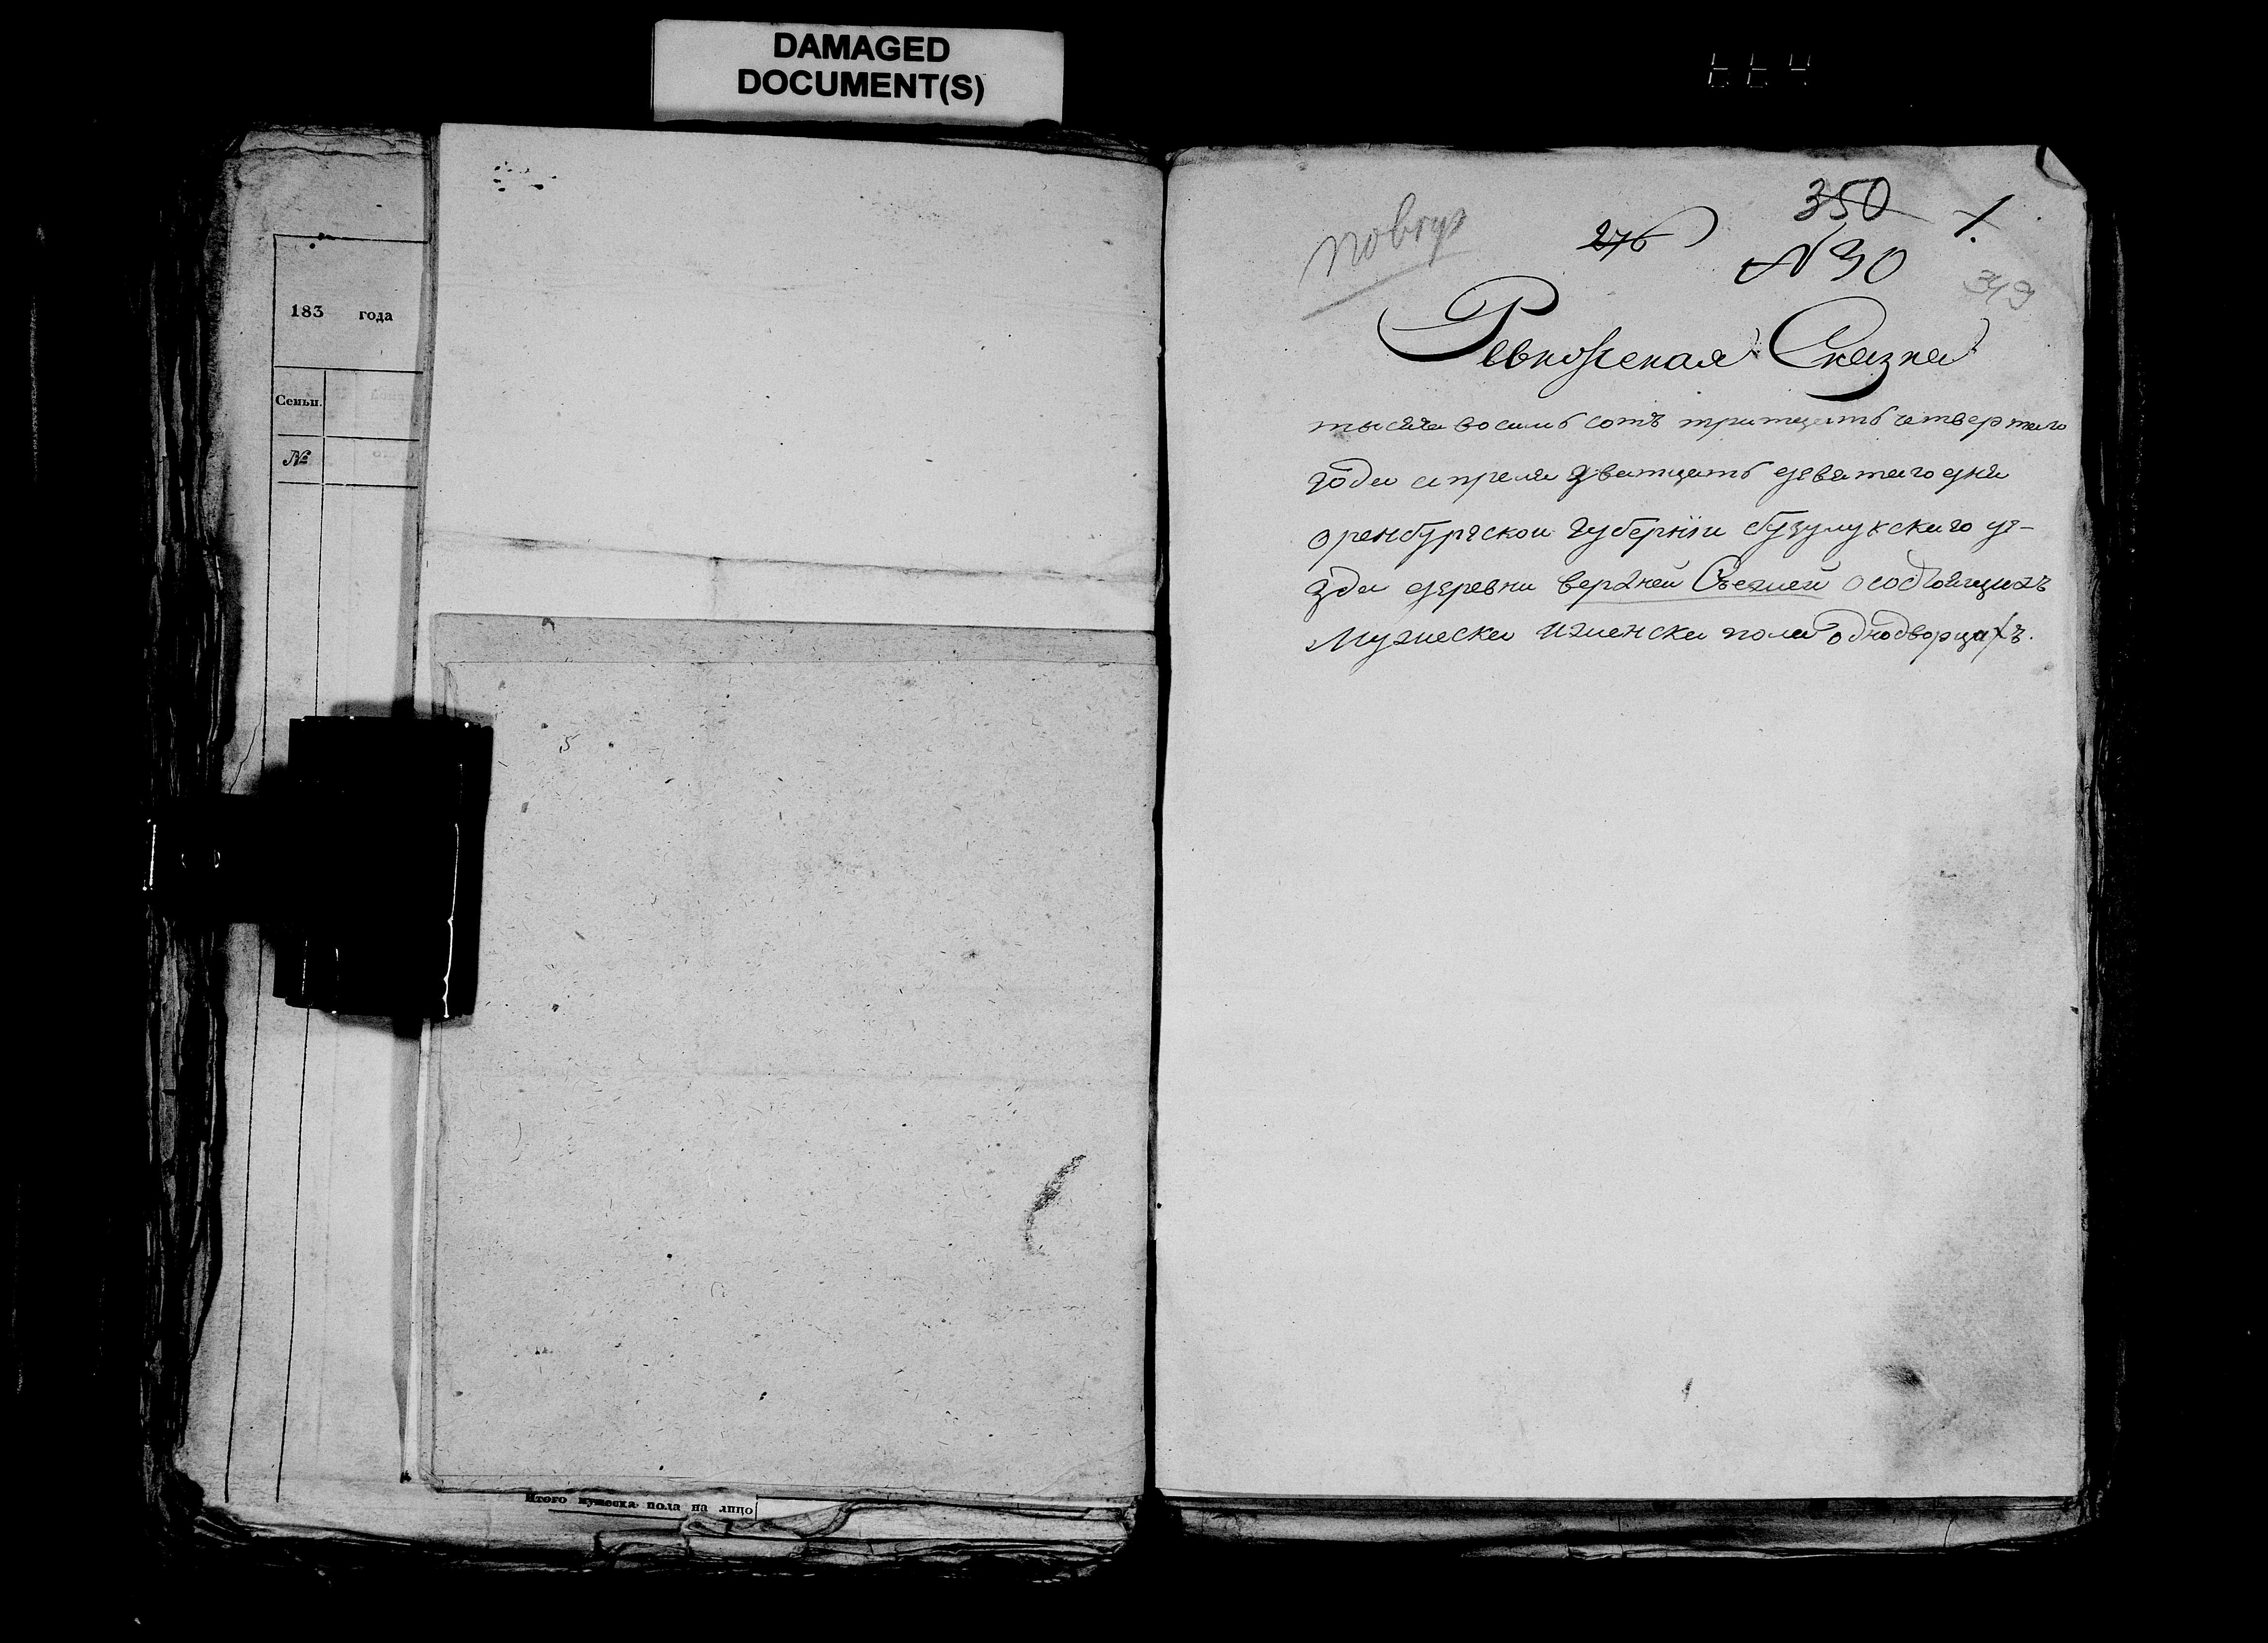 DAMAGED
DOCUMENT(S)
183 года
Семьи.
№
Итого мужеска пола на лицо
350
276
1.
N 30
349
Ревижская Сказка
тысяча восемь сотъ тритцать четвертаго
года апреля дватцать девятаго дня
оренбургской губернiи бузулукскаго уе-
зда деревни верхней Съезжей осостоящихъ
Мужеска иженска пола однодворцахъ.